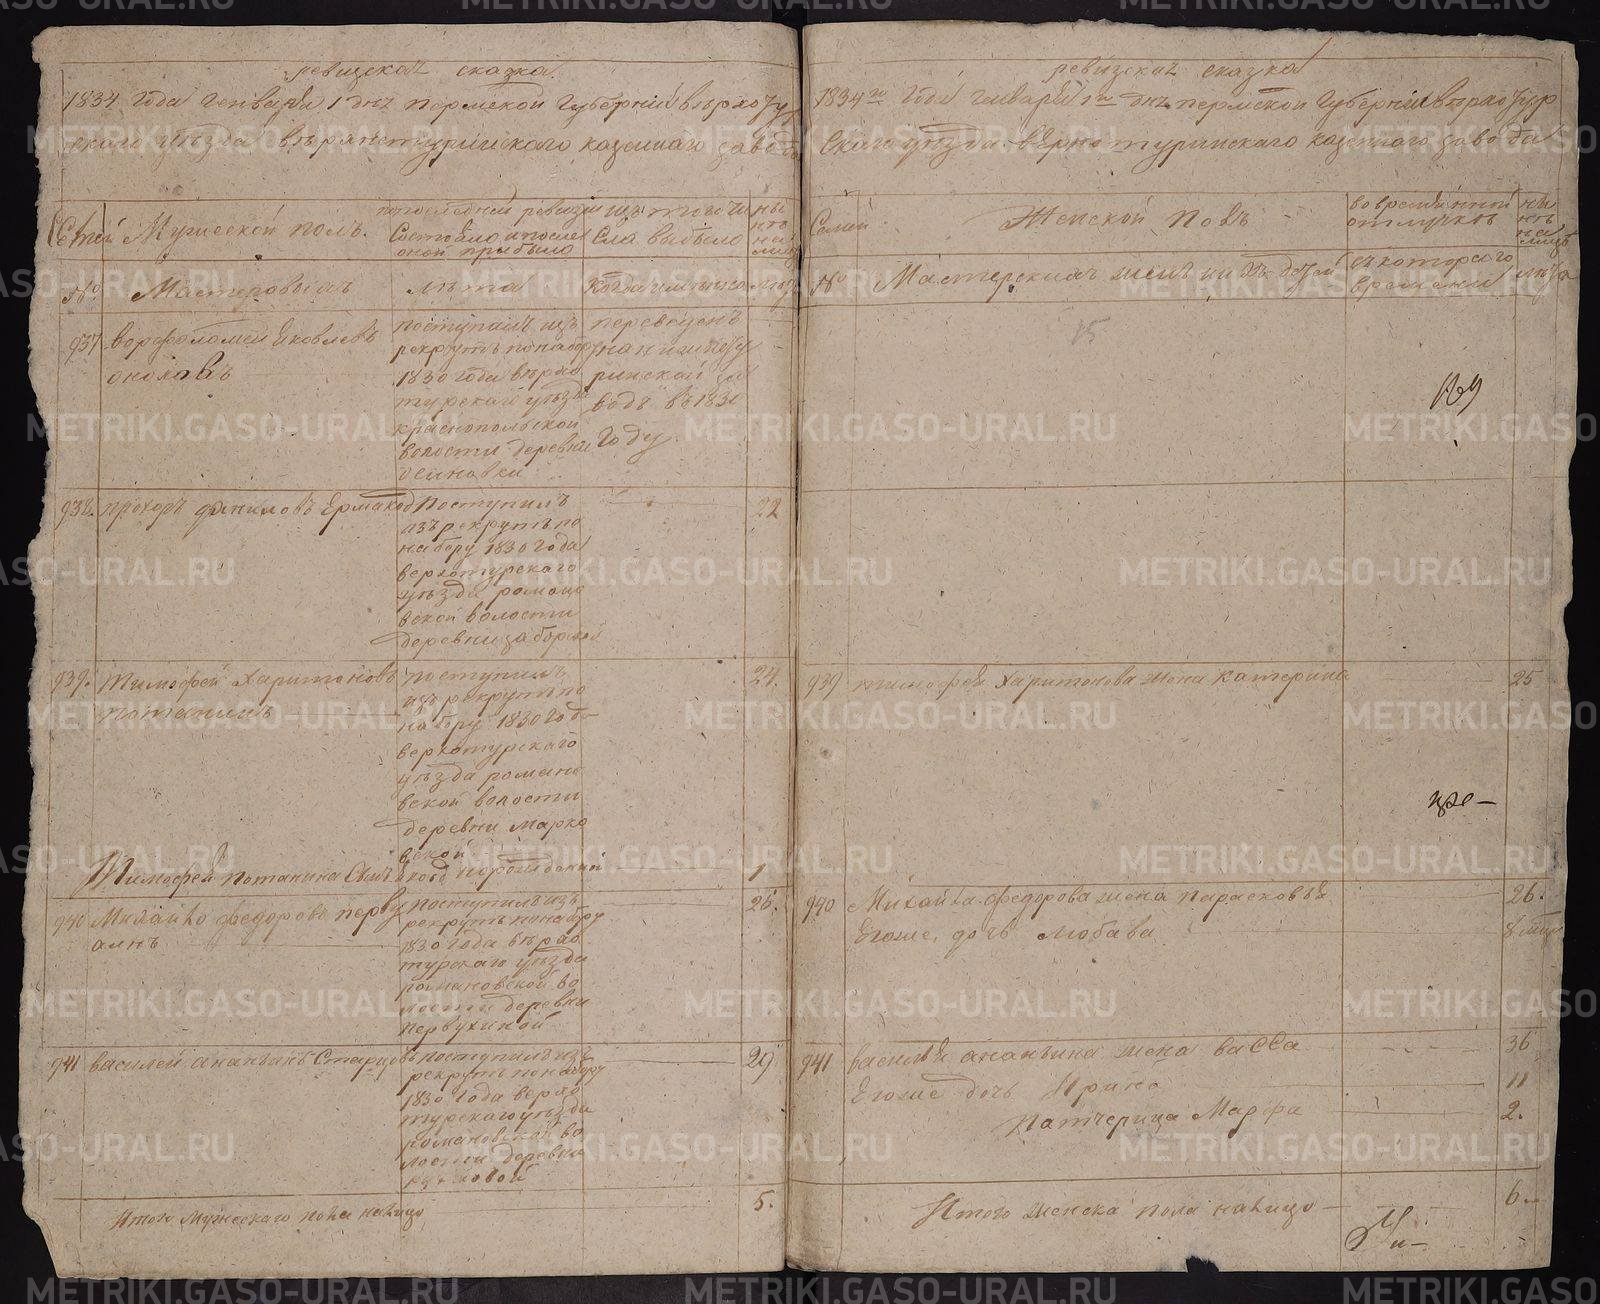 ревизская сказка
1834 года генваря 1 дня пермской Губернии верхоту
скаго уезда верхнетуринскаго казеннаго завода
Семей
Мужеской полъ.
по последней ревизии
состояло и после
оной прибыло
изъ того чи
сла выбыло
ны
не
на
лицо
№
Мастеровыхъ
лета
когда имянно
лета
937
ворфоломей Яковлевъ
поступилъ изъ
рекрутъ по набору
1830 года верхо
турскаго уезда
краснопольской
волости деревни
осиновки
переведенъ
на нижнету
ринской за
водъ въ 1831
году
938.
прохоръ даниловъ Ермаков
поступилъ
изъ рекрутъ по
набору 1830 года
верхотурскаго
уезда романо
вской волости
деревни заборской
22
939.
тимофей Харитоновъ
потанинъ
поступилъ
изъ рекрутъ по
набору 1830 год
верхотурскаго
уезда романо
вской волости
деревни марко
вской
24.
Тимофея потанина сынъ Яковъ новорожденной
1
940
Михайло федоровъ перву
хинъ
поступилъ изъ
рекрутъ по набору
1830 года верхо
турскаго уезда
романовской во
лости деревни
первухиной
25.
941
василей ананьинъ Старцов
поступилъ изъ
рекрутъ по набору
1830 года верхо
турскаго уезда
романовской во
лости деревни
29
Итого мужескаго пола налицо
5.
ревизская сказка
1834го года генваря 1го дня пермской Губернии верхотур
скаго уезда верхнетуринскаго казеннаго завода
Семей
Женской полъ
во временной
отлучке
ны
не
на
лицо
№
Мастерскихъ женъ и их детей
съ котораго
времени
лета
15
169
939
тимофея Харитонова жена катерина
25
940
Михайла федорова жена парасковья
26.
Егоже, дочь любава
8 мес
941
василья ананьина жена васса
36
Егоже дочь Ирина
11
патчерица Марфа
2.
Итого женска пола налицо
6.
METRIKI.GASO-URAL.RU